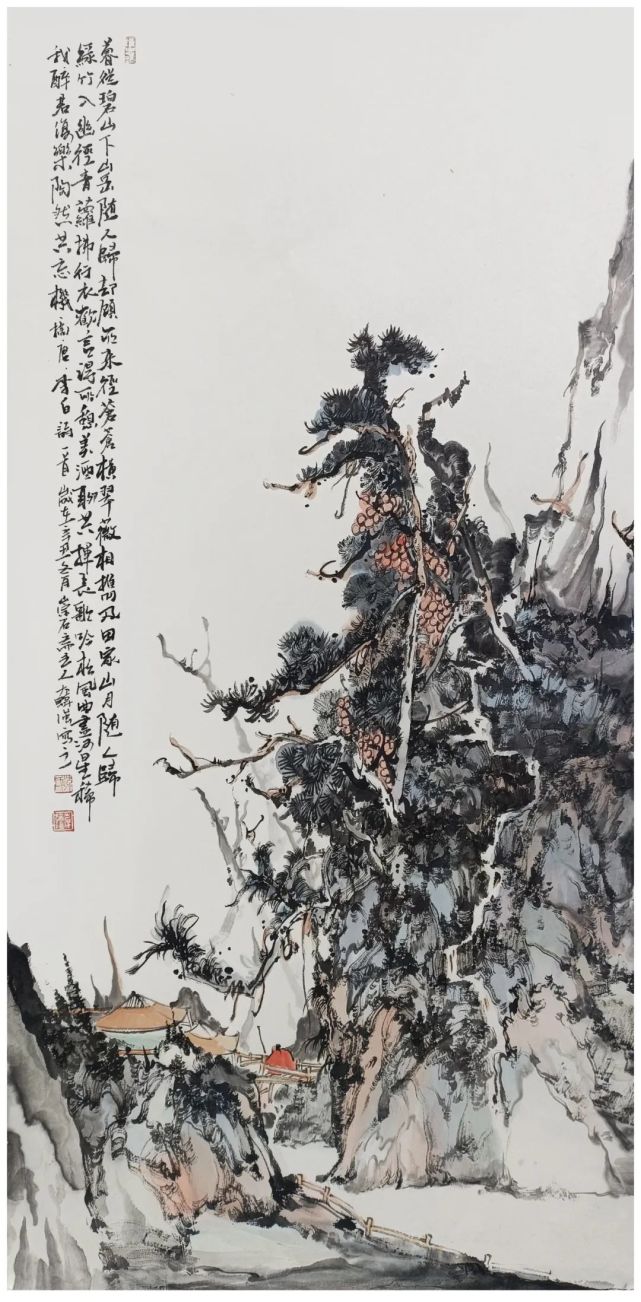 暮從碧山下山岳随人歸却顧所來徑蒼蒼橫翠薇相攜及田家山月随人歸
綠竹入幽徑青蘿拂行衣歡言得所憩美酒聊共揮長歌吟松風曲盡河星稀
我醉君復樂陶然共忘機 摘唐李白詩一首 歲在辛丑冬月崇石齋主人